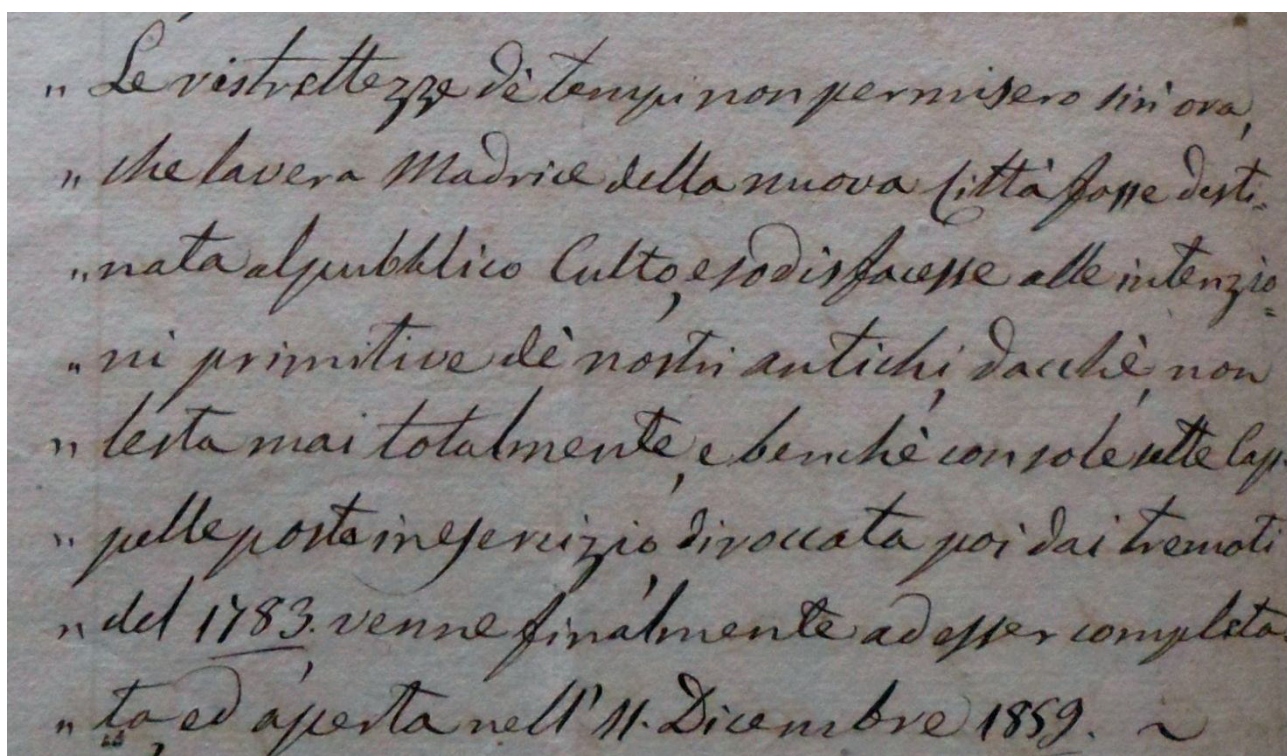 " Le ristrettezze dè tempi non permisero sin ora,
" che la vera Madrice della nuova Città fosse desti=
" nata al pubblico Culto, e sodisfacesse alle intenzio=
" ni primitive dè nostri antichi, dacchè, non
" lesta mai totalmente, e benchè con sole sette Cap=
" pelle posta in esercizio, diroccata poi dai tremoti
" del 1783. venne finalmente ad esser completa
" ta, ed aperta nell' 11. Dicembre 1859. ~